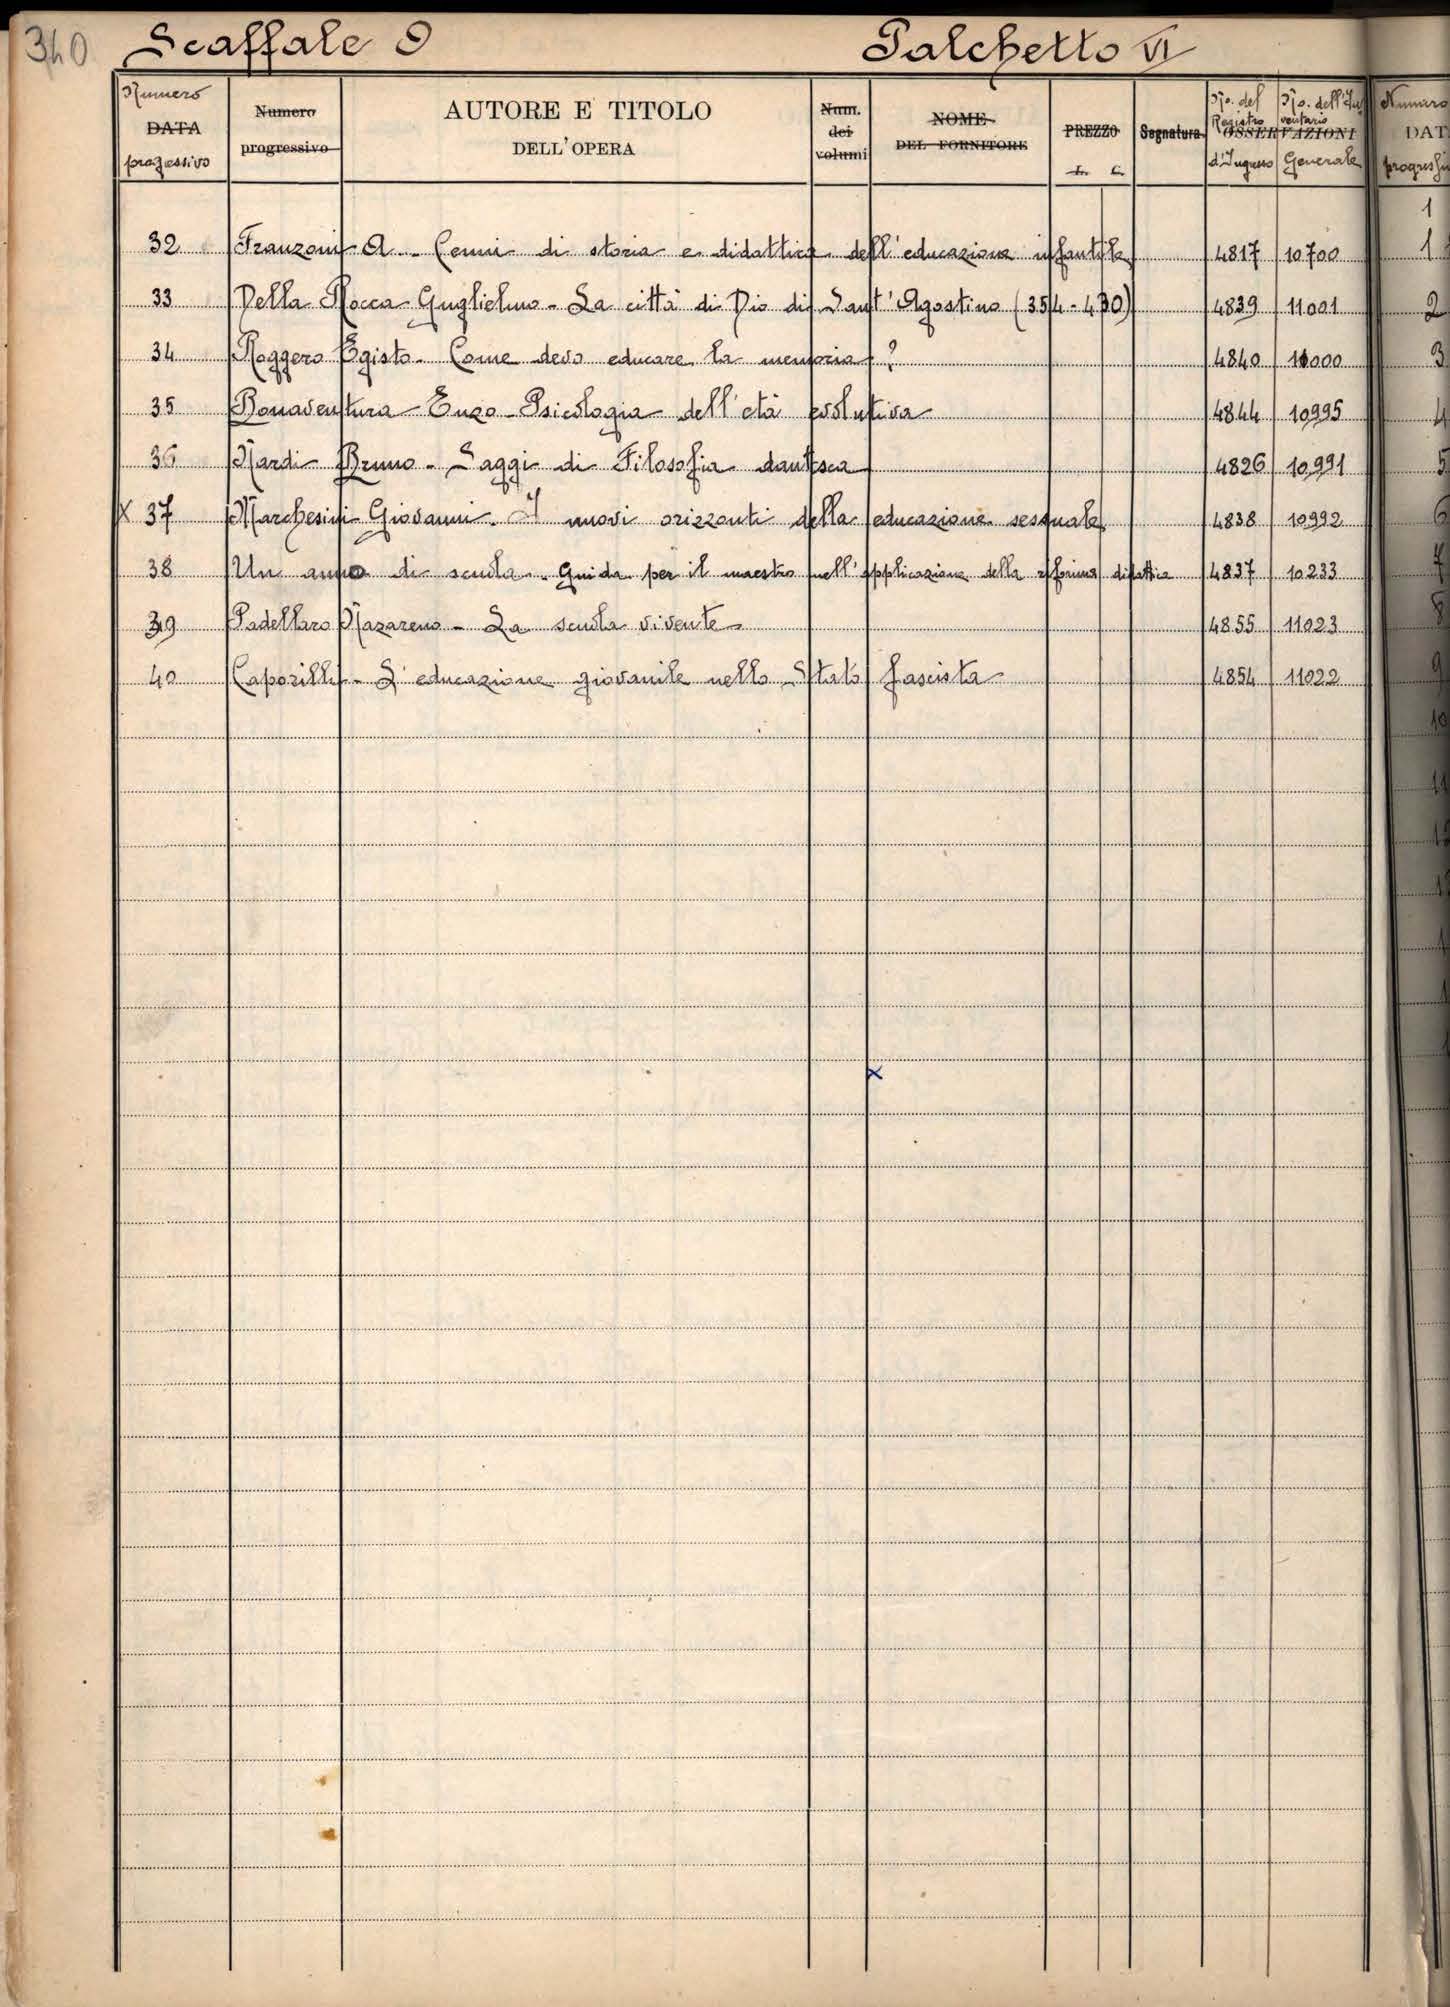 340 Scaffale O Palchetto VI
Numero DATA progressivo
Numero progressivo
AUTORE E TITOLO
DELL'OPERA
Num. dei volumi
NOME
DEL FORNITORE
PREZZO
L. C.
Segnatura
No. del Registro d'Ingresso
No. dell'Inventario Generale
OSSERVAZIONI
32 Franzoni A. - Cenni di storia e didattica dell'educazione infantile 4817 10700
33 Della Rocca Guglielmo - La città di Dio di Sant'Agostino (354-430) 4839 11001
34 Roggero Egisto - Come devo educare la memoria? 4840 11000
35 Bonaventura Enzo - Psicologia dell'età evolutiva 4844 10995
36 Nardi Bruno - Saggi di Filosofia dantesca 4826 10991
X 37 Marchesini Giovanni - I nuovi orizzonti della educazione sessuale 4838 10992
38 Un anno di scuola - Guida per il maestro nell'applicazione della riforma didattica 4837 10233
39 Padellaro Nazareno - La scuola vivente 4855 11023
40 Caporilli - L'educazione giovanile nello Stato fascista 4854 11022
x
Numero
DAT
1
1
2
3
4
5
6
7
8
9
10